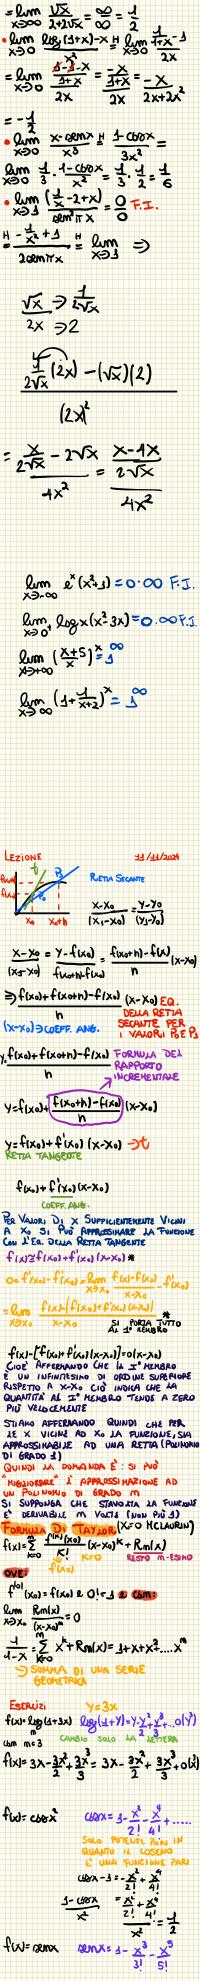 = lim x→0 √x / 2+2√x = ∞/∞ = 1/2
• lim x→0 log(1+x)-x / x² =H lim x→0 1/1+x -1 / 2x
= lim x→0 1-1-x / 1+x / 2x = -x / 1+x / 2x = -x / 2x+2x²
= -1/2
• lim x→0 x-senx / x³ =H 1-cosx / 3x² =
lim x→0 1/3 · 1-cosx / x² = 1/3 · 1/2 = 1/6
• lim x→1 (1/x -2+x) / sen² πx = 0/0 F.I.
=H -1/x² +1 / 2senπx =H lim x→1 ⇒
√x / 2x ⇒ 1/2√x ⇒ 2
1/2√x (2x) - (√x)(2) / (2x)²
= x/2√x - 2√x / 4x² = x-4x / 2√x / 4x²
lim x→-∞ eˣ(x²+1) = 0·∞ F.I.
lim x→0⁺ logx(x²-3x) = 0·∞ F.I.
lim x→+∞ (x+5 / x)ˣ = 1^∞
lim x→∞ (1+ 1/x+2)ˣ = 1^∞
LEZIONE 11/11/2024
RETTA SECANTE
x-x₀ / (x₁-x₀) = y-y₀ / (y₁-y₀)
x-x₀ / (x₁-x₀) = y-f(x₀) / f(x₀+h)-f(x₀) = f(x₀+h)-f(x) / h (x-x₀)
⇒ f(x₀)+f(x₀+h)-f(x₀) / h (x-x₀) EQ. DELLA RETTA
(x-x₀)⇒COEFF. ANG. SECANTE PER I VALORI P₀ E P₁
y= f(x₀)+f(x₀+h)-f(x₀) / h FORMULA DEL RAPPORTO INCREMENTALE
y=f(x₀)+ f(x₀+h)-f(x₀) / h (x-x₀)
y= f(x₀)+f'(x₀)(x-x₀) → t
RETTA TANGENTE
f(x₀)+f'(x₀)(x-x₀)
COEFF. ANG.
PER VALORI DI X SUFFICIENTEMENTE VICINI
A X₀ SI PUÒ APPROSSIMARE LA FUNZIONE
CON L'EQ. DELLA RETTA TANGENTE
f(x)≅f(x₀)+f'(x₀)(x-x₀) *
0= f'(x₀)-f'(x₀) = lim x→x₀ f(x)-f(x₀) / x-x₀ - f'(x₀)
= lim x→x₀ f(x)-[f(x₀)+f'(x₀)(x-x₀)] / x-x₀ * SI PORTA TUTTO AL 1° MEMBRO
f(x)-[f(x₀)+f'(x₀)(x-x₀)]=0(x-x₀)
CIOÈ AFFERMANDO CHE IL 1° MEMBRO
È UN INFINITESIMO DI ORDINE SUPERIORE
RISPETTO A X-X₀ CIÒ INDICA CHE LA
QUANTITÀ AL 1° MEMBRO TENDE A ZERO
PIÙ VELOCEMENTE
STIAMO AFFERMANDO QUINDI CHE PER
LE X VICINE AD X₀ LA FUNZIONE, SIA
APPROSSIMABILE AD UNA RETTA (POLINOMIO
DI GRADO 1)
QUINDI LA DOMANDA È: SI PUÒ
"MIGLIORARE" L'APPROSSIMAZIONE AD
UN POLINOMIO DI GRADO M
SI SUPPONGA CHE STAVOLTA LA FUNZIONE
È DERIVABILE M VOLTE (NON PIÙ 1)
FORMULA DI TAYLOR (X=0 MCLAURIN)
f(x)= Σ f⁽ᵏ⁾(x₀) / K! (x-x₀)ᵏ + Rm(x)
K=0 RESTO M-ESIMO
OVE: f(x₀)
f⁽⁰⁾(x₀) = f(x₀) e 0!=1 e con:
lim x→x₀ Rm(x) / (x-x₀)ᵐ = 0
1/1-x = Σ xᵏ + Rm(x) = 1+x+x²....xᵐ
⇒ SOMMA DI UNA SERIE GEOMETRICA
ESERCIZI y=3x
f(x)= log(1+3x) log(1+y)=y-y²/2+y³/3...0(y³)
con m=3 CAMBIO SOLO LA LETTERA
f(x)= 3x-3x²/2+3x³/3 = 3x-3x²/2+3x³/3+0(x³)
f(x)= cosx² cosx= 1-x²/2!-x⁴/4!+.....
SOLO POTENZE PARI IN
QUANTO IL COSENO
È UNA FUNZIONE PARI
cosx-1=-x²/2!+x⁴/4!
1-cosx / x² = x²/2!+x⁴/4! / x² = 1/2
f(x)= senx senx= 1-x³/3!-x⁵/5!